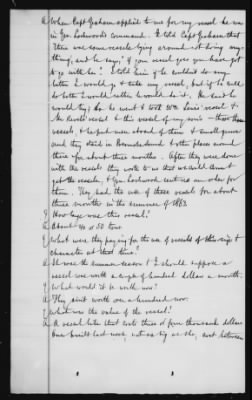 A When Capt Graham applied to me for my vessel he was
in Gen Lockwood's command. I told Capt Graham that
there was some vessels lying around it doing any-
thing, and he says, "if your vessel goes you have got
to go with her." I told him if he couldn't do any
better I would go & take my vessel, but if he could
do better I would rather he would do it. He said he
would try; So he went & took Wm Lewis' vessel &
Mr Revells' vessel & this vessel of my son's - these three
vessels & he put men aboard of them & small guns
and they staid in Pocomoke Sound & other places around
there for about three months. After they were done
with the vessels they wrote to us that we could come &
get the vessels, & Gen Lockwood sent us an order for
them. They had the use of these vessels for about
three months in the summer of 1863.
Q How large was this vessel?
A About 40 or 50 tons.
Q What were they paying for the use of vessels of this size &
character at that time?
A It was the summer season & I should suppose a
vessel was worth a couple of hundred dollars a month.
Q What would it be worth now?
A They aint worth over a hundred now.
Q What was the value of the vessel?
A A vessel like that costs three or four thousand dollars
One built last week, not as big as she, cost between